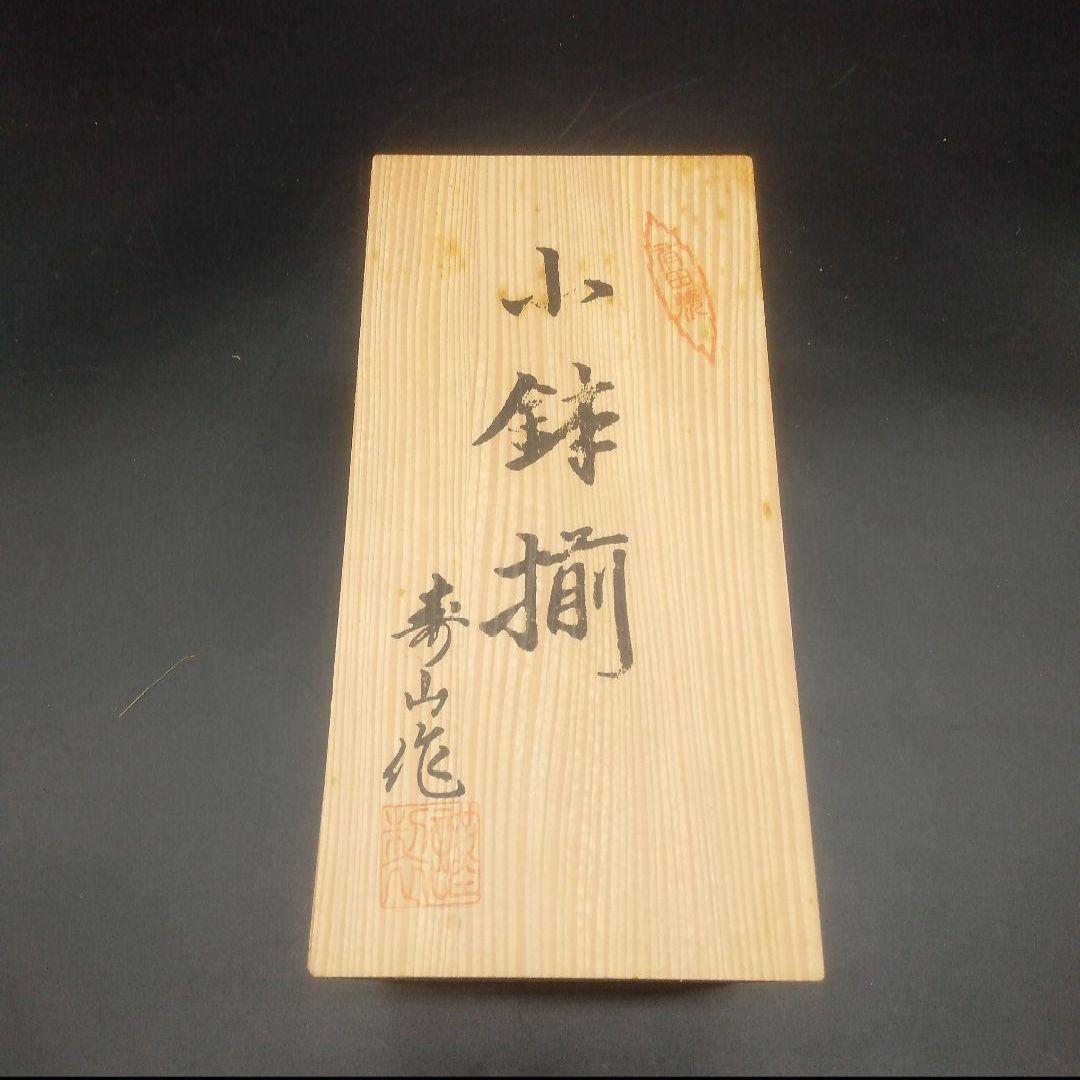 有田焼
小鉢揃
寿山作